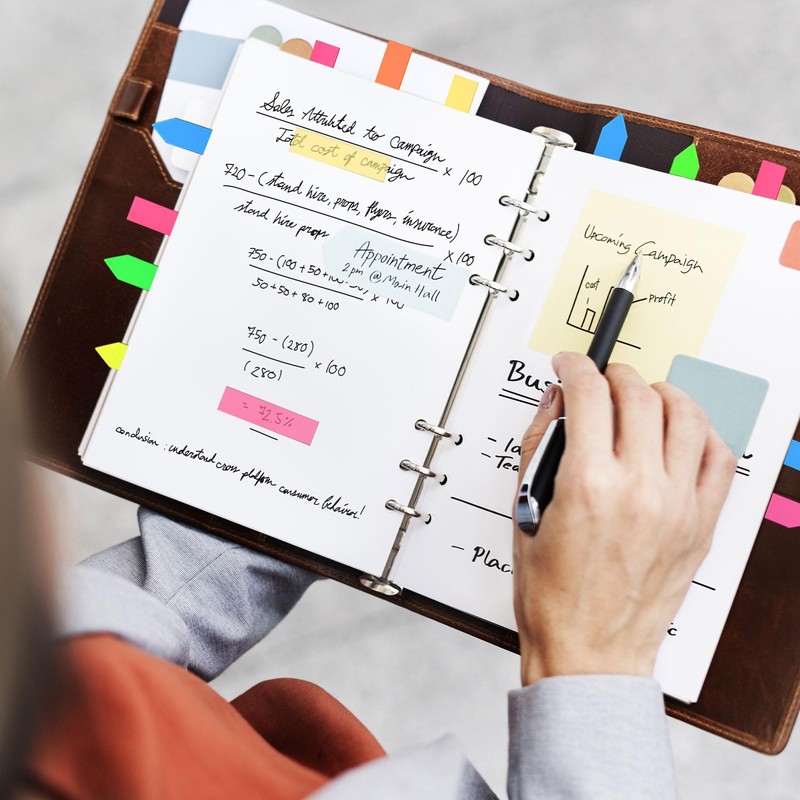 Sales Attributed to Campaign
Total cost of campaign
x 100
720 - (stand hire, props, flyers, insurance)
x 100
stand hire props
Appointment
2 pm @ Main Hall
750 - (100 + 50 +
x 100
50 + 50 + 80 + 100
750 - (280)
x 100
(280)
= 72.5%
conclusion : understand cross platform consumer behavior!
Upcoming Campaign
cost
profit